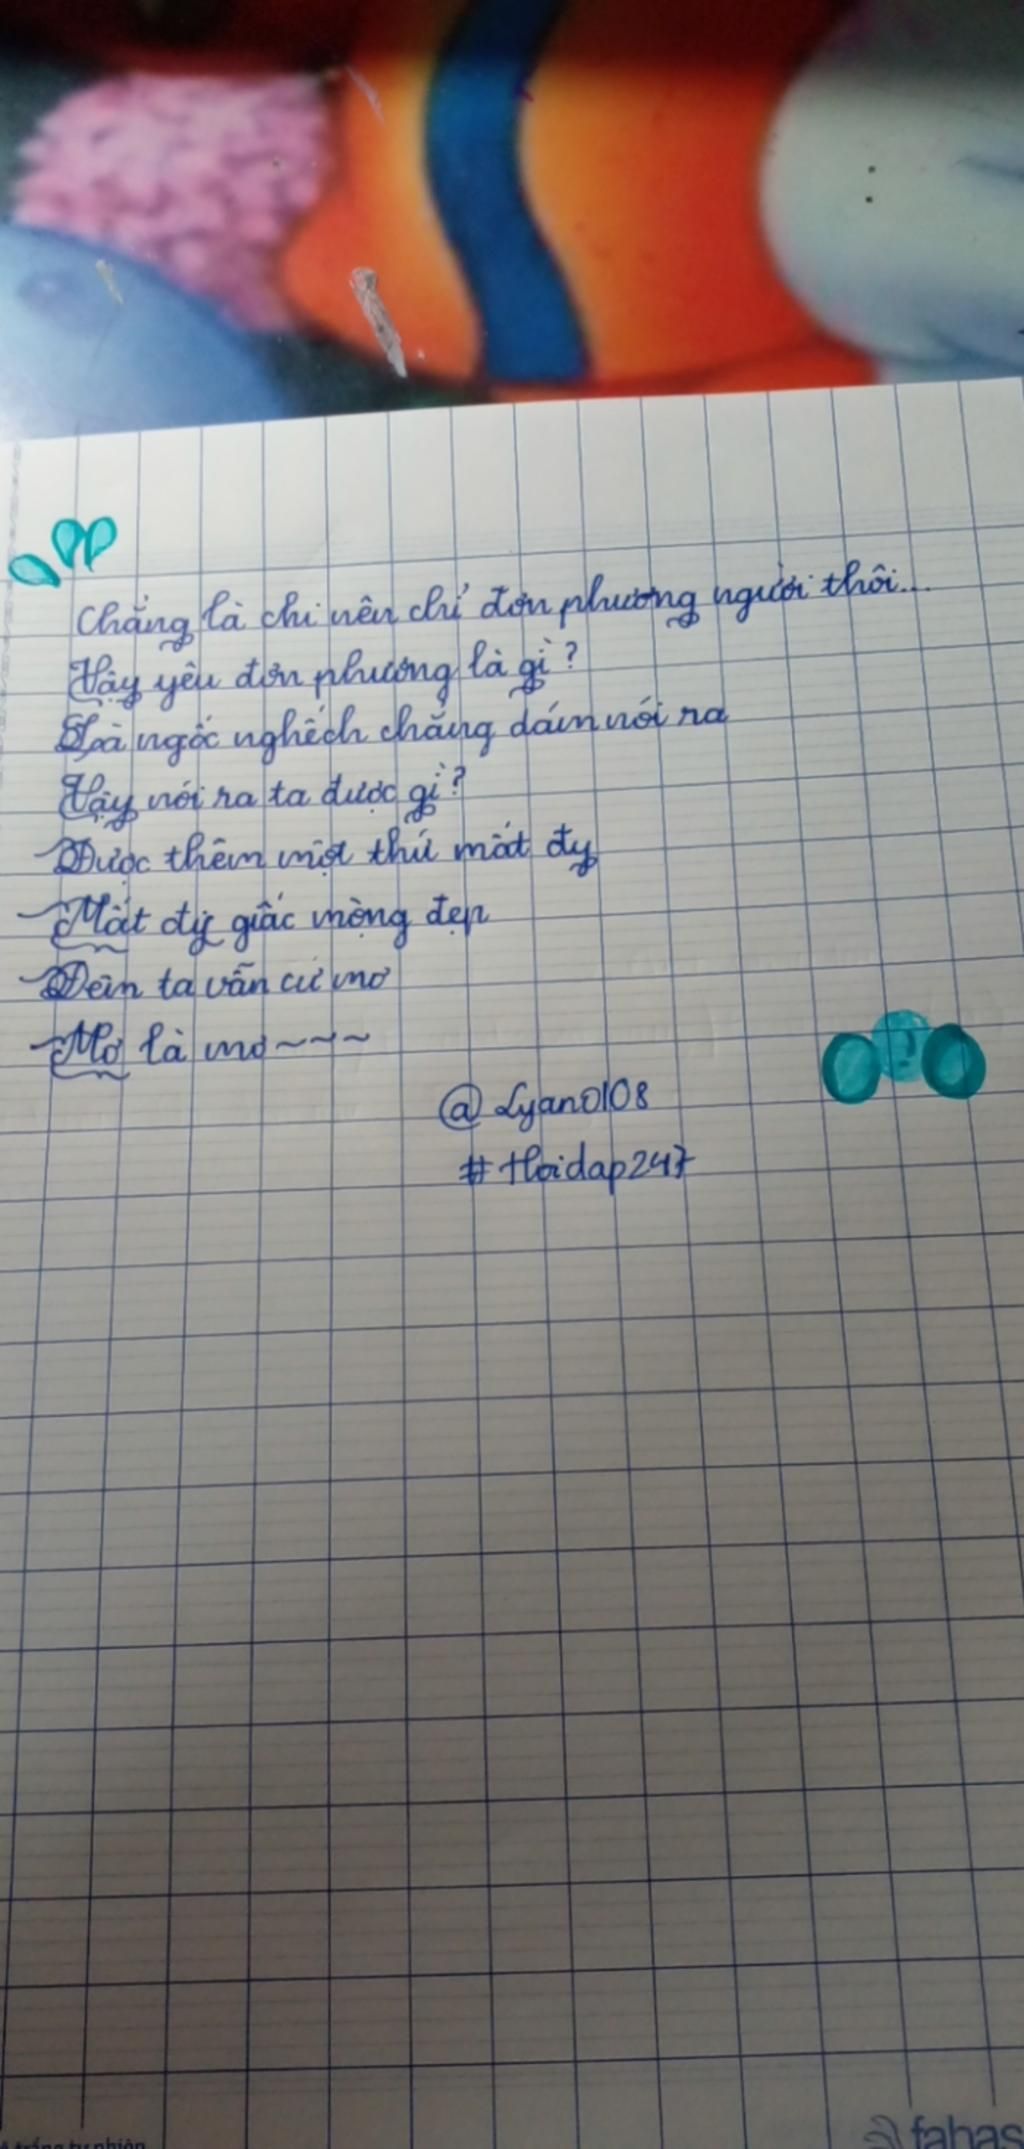 Chẳng là chi nên chỉ đơn phương người thôi...
Vậy yêu đơn phương là gì?
Là ngốc nghếch chẳng dám nói ra
Vậy nói ra ta được gì?
Được thêm một thứ mất đy
Mất đy giấc mộng đẹp
Đêm ta vẫn cứ mơ
Mơ là mơ ~~~
@Lyan0108
#Hoidap247
trắng tự nhiên
fahas